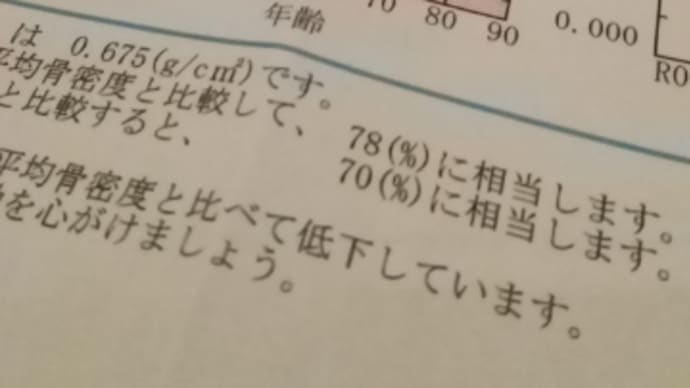 70 80 90
年齢
0.000
R0
は 0.675(g/c㎡)です。
平均骨密度と比較して、 78(%)に相当します。
と比較すると、 70(%)に相当します。
平均骨密度と比べて低下しています。
を心がけましょう。